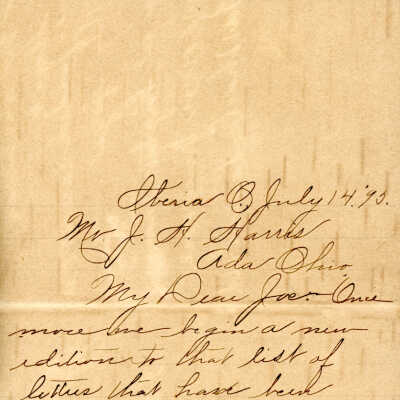 Iberia O., July 14, '93.
Mr J. H. Harris
Ada Ohio,
My Dear Joe:- Once
more we begin a new
edition to that list of
letters that have been